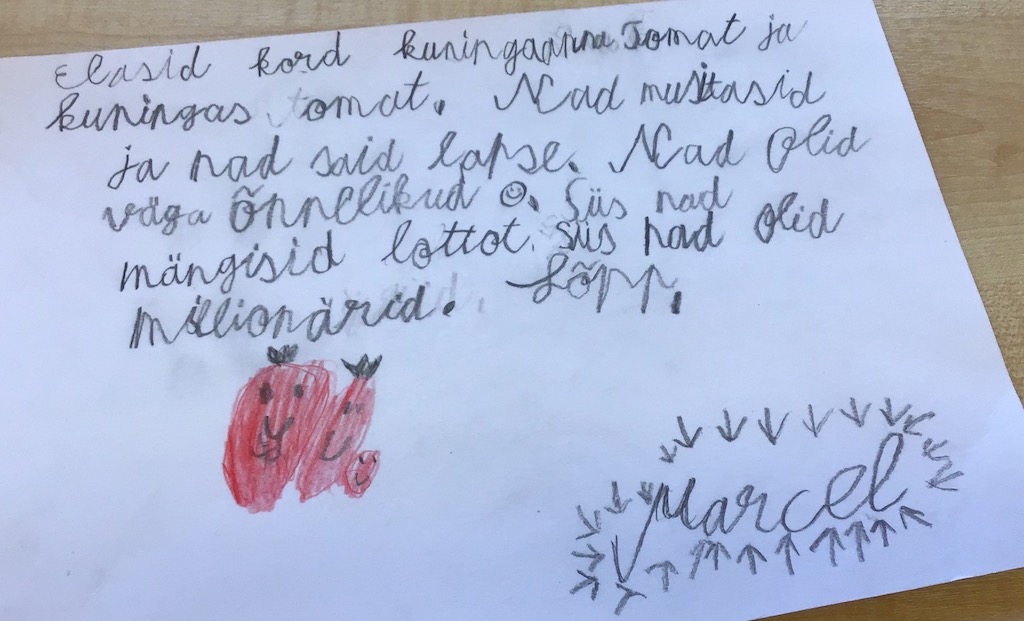 Elasid kord kuningaanna Tomat ja
kuningas tomat. Nad musitasid
ja nad said lapse. Nad olid
väga õnnelikud ☺. Siis nad
mängisid lottot. Siis nad olid
millionärid. Lõpp.
Marcel